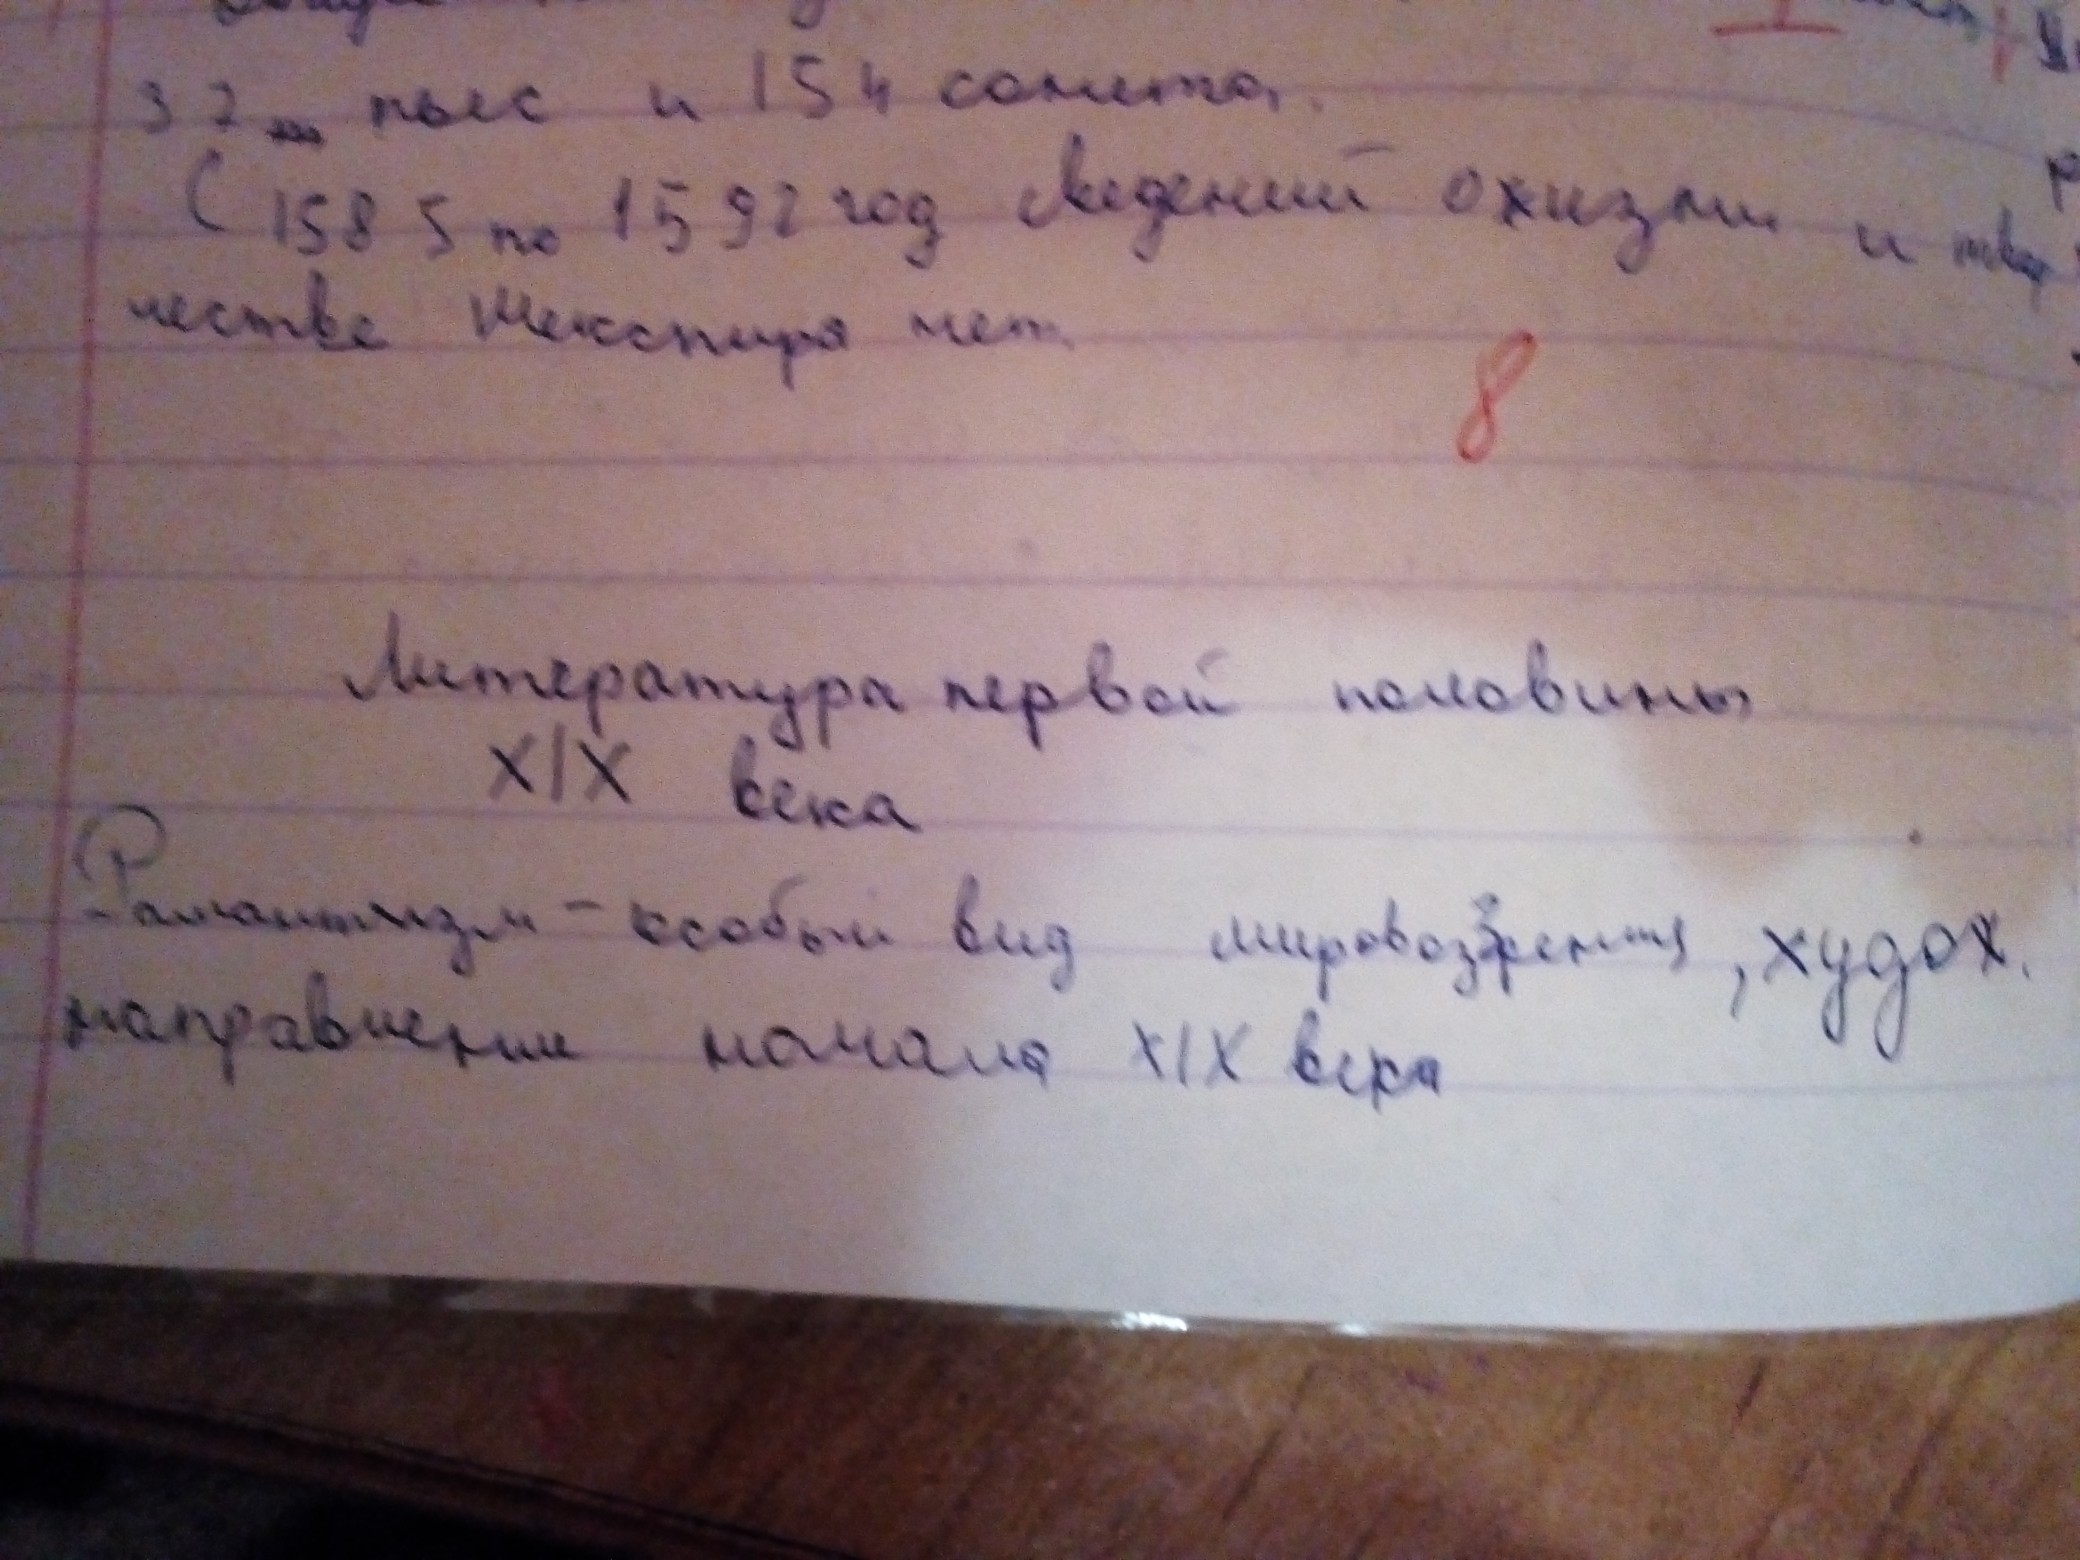 37 пьес и 154 сонета.
С 1585 по 1592 год сведений о жизни и твор
честве Шекспира нет.
8
Литература первой половины
XIX века
Романтизм - особый вид мировоззрения, худох.
направлении начала XIX века